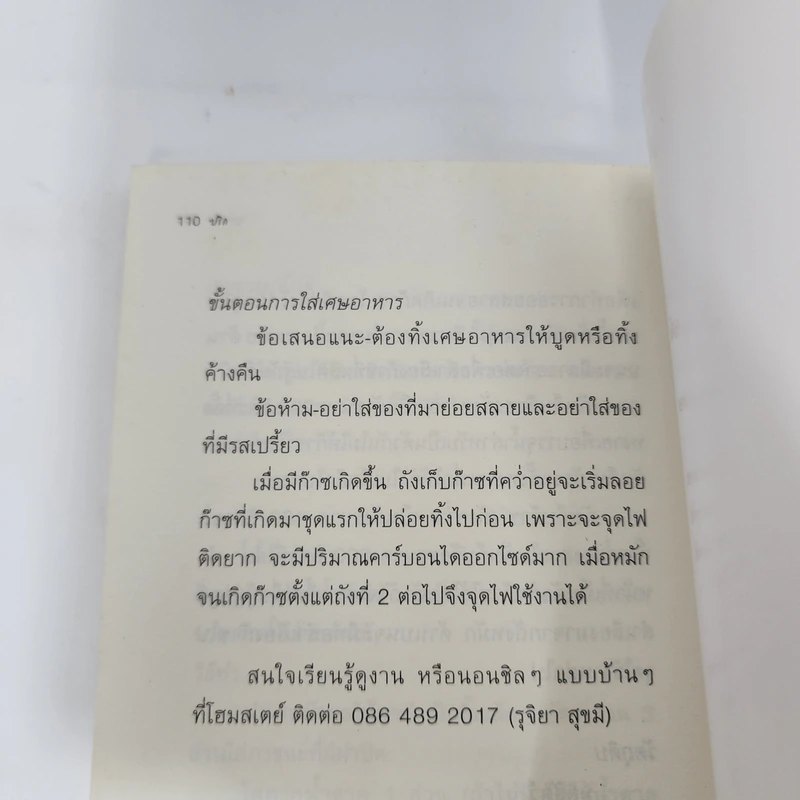 110
ขั้นตอนการใส่เศษอาหาร
ข้อเสนอแนะ-ต้องทิ้งเศษอาหารให้บูดหรือทิ้ง
ค้างคืน
ข้อห้าม-อย่าใส่ของที่มาย่อยสลายและอย่าใส่ของ
ที่มีรสเปรี้ยว
เมื่อมีก๊าซเกิดขึ้น ถังเก็บก๊าซที่คว่ำอยู่จะเริ่มลอย
ก๊าซที่เกิดมาชุดแรกให้ปล่อยทิ้งไปก่อน เพราะจะจุดไฟ
ติดยาก จะมีปริมาณคาร์บอนไดออกไซด์มาก เมื่อหมัก
จนเกิดก๊าซตั้งแต่ถังที่ 2 ต่อไปจึงจุดไฟใช้งานได้
สนใจเรียนรู้ดูงาน หรือนอนชิลๆ แบบบ้านๆ
ที่โฮมสเตย์ ติดต่อ 086 489 2017 (รุจิยา สุขมี)